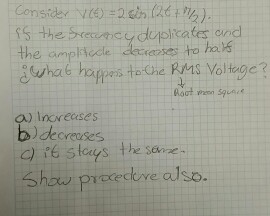 Consider V(t) = 2 sin (2t + π/2).
If the frecuency duplicates and
the amplitude decreases to half
¿what happens to the RMS Voltage?
↓
Root mean square
a) Increases
b) decreases
c) it stays the same.
Show procedure also.